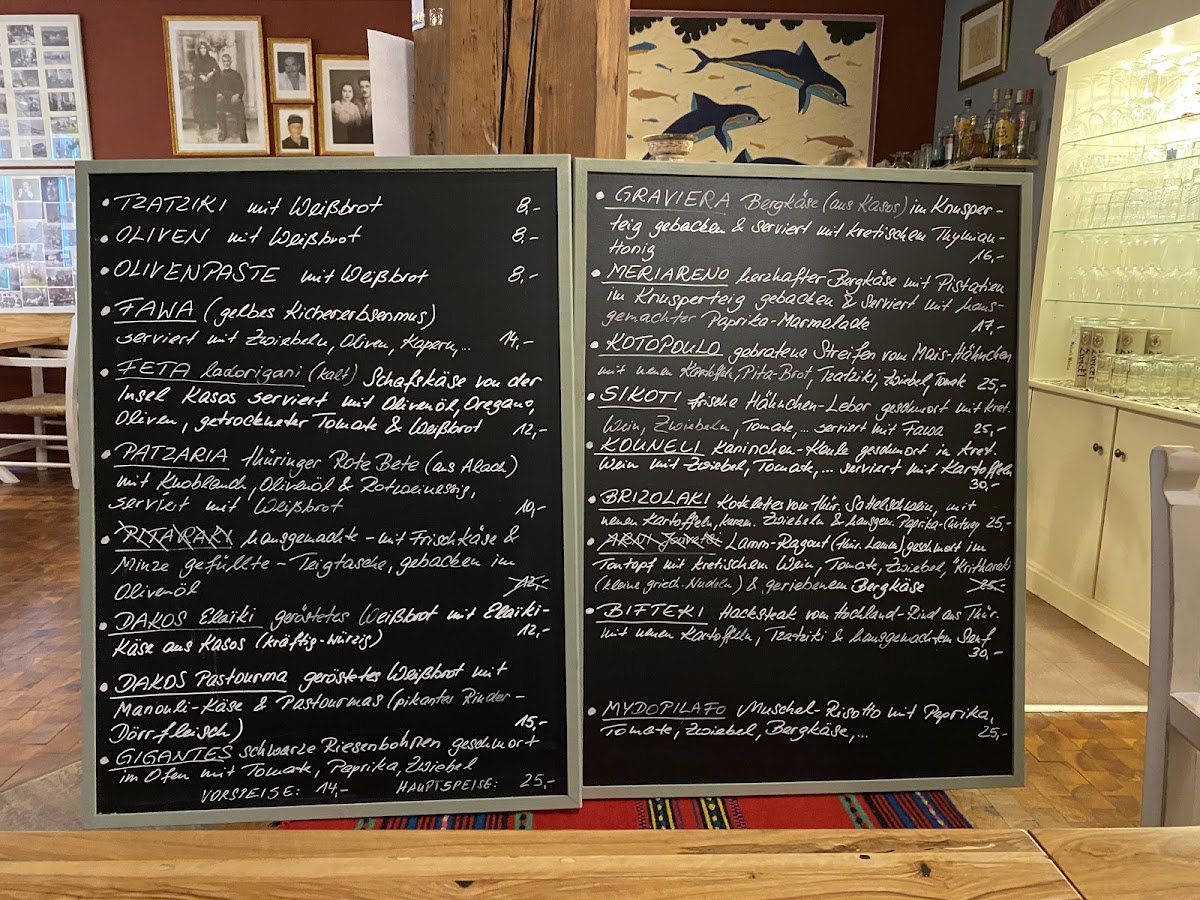 • TZATZIKI mit Weißbrot 8,-
• OLIVEN mit Weißbrot 8,-
• OLIVENPASTE mit Weißbrot 8,-
• FAWA (gelbes Kichererbsenmus)
serviert mit Zwiebeln, Oliven, Kapern,... 14,-
• FETA ladorigani (kalt) Schafskäse von der
Insel Kasos serviert mit Olivenöl, Oregano,
Oliven, getrockneter Tomate & Weißbrot 12,-
• PATZARIA thüringer Rote Bete (aus Alach)
mit Knoblauch, Olivenöl & Rotweinessig,
serviert mit Weißbrot 10,-
• PITARAKI hausgemachte - mit Frischkäse &
Minze gefüllte - Teigtasche, gebacken im
Olivenöl
• DAKOS Elaiki geröstetes Weißbrot mit Elaiki-
Käse aus Kasos (kräftig-würzig) 12,-
• DAKOS Pastourma geröstetes Weißbrot mit
Manouli-Käse & Pastourmas (pikantes Rinder-
Dörrfleisch) 15,-
• GIGANTES schwarze Riesenbohnen geschmort
im Ofen mit Tomate, Paprika, Zwiebel
VORSPEISE: 14,- HAUPTSPEISE: 25,-
• GRAVIERA Bergkäse (aus Kasos) im Knusper-
teig gebacken & serviert mit kretischem Thymian-
Honig 16,-
• MERIARENO herzhafter Bergkäse mit Pistatien
im Knusperteig gebacken & serviert mit haus-
gemachter Paprika-Marmelade 17,-
• KOTOPOULO gebratene Streifen vom Mais-Hähnchen
mit neuen Kartoffeln, Pita-Brot, Tzatziki, Zwiebel, Tomate 25,-
• SIKOTI frische Hähnchen-Leber geschmort mit kret.
Wein, Zwiebeln, Tomate,... serviert mit Fawa 25,-
• KOUNELI Kaninchen-Keule geschmort in kret.
Wein mit Zwiebel, Tomate,... serviert mit Kartoffeln
30,-
• BRIZOLAKI Kotelettes vom Thür. Sattelschwein, mit
neuen Kartoffeln, karam. Zwiebeln & hausgem. Paprika-Cutney 25,-
• ARNI Jouvetsi Lamm-Ragout (thür. Lamm), geschmort im
Tontopf mit kretischem Wein, Tomate, Zwiebel, "Kritharaki
(kleine griech. Nudeln) & geriebenem Bergkäse 25,-
• BIFTEKI Hacksteak vom Hochland-Rind aus Thür.
mit neuen Kartoffeln, Tzatziki & hausgemachtem Senf
30,-
• MYDOPILAFO Muschel-Risotto mit Paprika,
Tomate, Zwiebel, Bergkäse,... 25,-